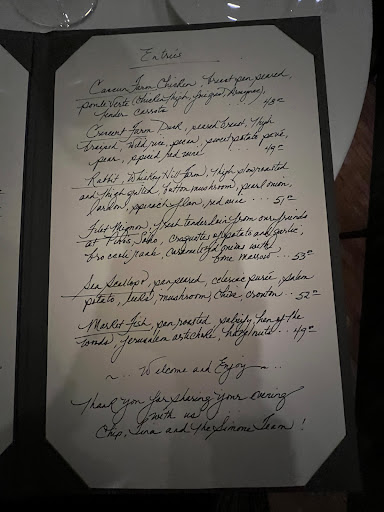 Entrées
Farm Chicken, breast pan seared,
Verte (chicken thigh, foie gras,
tender carrots ... 43
Crescent Farm Duck, seared breast, thigh
braised, wild rice, pecan, sweet potato pavé,
pear, spiced red wine ... 49
Rabbit, Whiskey Hill Farm, thigh slow roasted
and thigh grilled, button mushroom, pearl onion,
lardon, spinach flan, red wine ... 51
Filet Mignon, fresh tenderloin from our friends
at potato and garlic,
broccoli rabe, caramelized onions with
bone marrow ... 53
Sea Scallops, pan seared, celeriac purée, salem
potato, leeks, mushroom, chive, crouton .. 52
Market Fish, pan roasted, salsify, hen of the
woods, Jerusalem artichoke, hazelnuts ... 49
~... Welcome and Enjoy ~...
Thank you for sharing your evening
with us
Chip, Tina and the Simone Team!